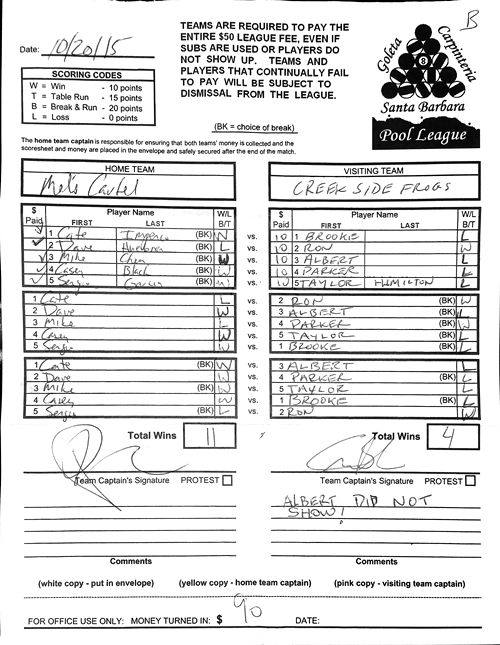 B
Date: 10/20/15
TEAMS ARE REQUIRED TO PAY THE
ENTIRE $50 LEAGUE FEE, EVEN IF
SUBS ARE USED OR PLAYERS DO
NOT SHOW UP. TEAMS AND
PLAYERS THAT CONTINUALLY FAIL
TO PAY WILL BE SUBJECT TO
DISMISSAL FROM THE LEAGUE.
Goleta Carpinteria
8
Santa Barbara
Pool League
SCORING CODES
W = Win - 10 points
T = Table Run - 15 points
B = Break & Run - 20 points
L = Loss - 0 points
(BK = choice of break)
The home team captain is responsible for ensuring that both teams' money is collected and the
scoresheet and money are placed in the envelope and safely secured after the end of the match.
HOME TEAM VISITING TEAM
Mel's Cartel CREEK SIDE FROGS
$ Paid Player Name FIRST LAST W/L B/T $ Paid Player Name FIRST LAST W/L B/T
1 Cate (BK) W vs. 10 1 BROOKIE L
2 Dave L vs. 10 2 RON W
3 Mike Chen (BK) W vs. 10 3 ALBERT L
4 Casey Black W vs. 10 4 PARKER L
5 Sergio (BK) W vs. 10 5 TAYLOR HAMILTON L
1 Cate L vs. 2 RON (BK) W
2 Dave W vs. 3 ALBERT L
3 Mike L vs. 4 PARKER (BK) W
4 Casey W vs. 5 TAYLOR L
5 Sergio W vs. 1 BROOKE (BK) L
1 Cate (BK) W vs. 3 ALBERT L
2 Dave W vs. 4 PARKER (BK) L
3 Mike (BK) W vs. 5 TAYLOR L
4 Casey W vs. 1 BROOKIE (BK) L
5 Sergio (BK) L vs. 2 RON W
Total Wins 11 Total Wins 4
Team Captain's Signature PROTEST Team Captain's Signature PROTEST
ALBERT DID NOT
SHOW!
Comments Comments
(white copy - put in envelope) (yellow copy - home team captain) (pink copy - visiting team captain)
FOR OFFICE USE ONLY: MONEY TURNED IN: $ 90 DATE: